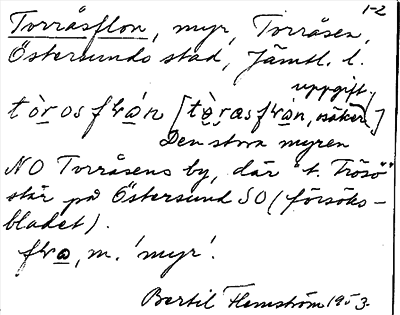 1-2
Torråsflon, myr, Torråsen,
Östersunds stad, Jämtl. l.
uppgift.
tòrosfɤan [tòrasfɤan, osäker]
Den stora myren
NO Torråsens by, där "t. Trösö"
står på Östersund SO (försöks-
bladet).
fɤa, m. 'myr'.
Bertil Flemström 1953.